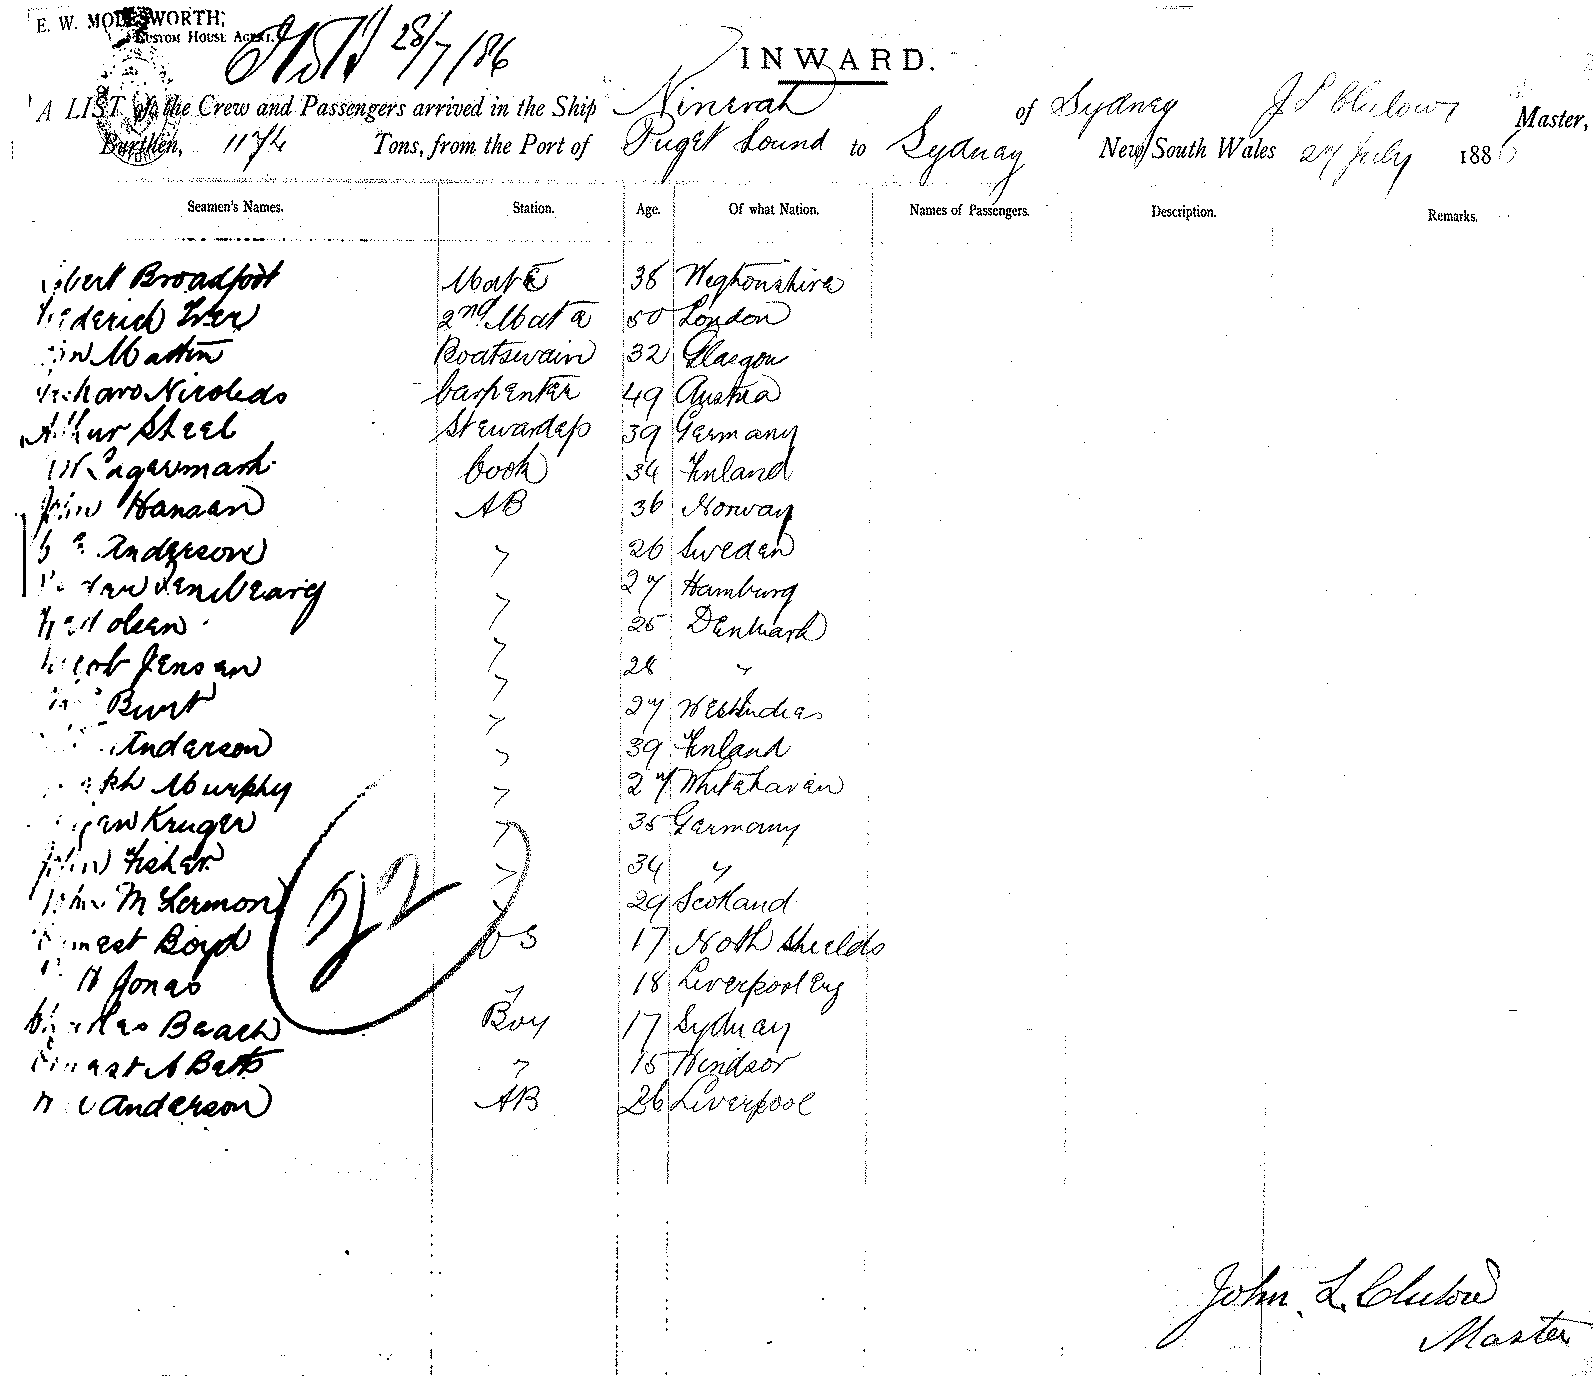 E. W. MOLESWORTH,
CUSTOM HOUSE AGENT.
28/7/86
INWARD.
A LIST of the Crew and Passengers arrived in the Ship Ninevah of Sydney Master,
Burthen, 1174 Tons, from the Port of Puget Sound to Sydney New South Wales 27 July 1886
Seamen's Names. Station. Age. Of what Nation. Names of Passengers. Description. Remarks.
Broadfoot Mate 38 Wigtonshire
Iver 2nd Mate 50 London
Martin Boatswain 32 Glasgow
49 Carpenter Austria
Arthur Steel Stewardess 39 Germany
Lagermark Cook 34 Finland
John Hansen AB 36 Norway
Anderson " 26 Sweden
" 27 Hamburg
Olsen " 25 Denmark
Jacob Jensen " 28 "
Burt " 27 West Indies
Anderson " 39 Finland
Murphy " 27 Whitehaven
Kruger " 35 Germany
John Fisher " 34 "
John " 29 Scotland
Ernest Boyd OS 17 North Shields
H Jonas " 18 Liverpool Eng
Charles Beach Boy 17 Sydney
Ernest A Batts " 15 Windsor
Anderson AB 26 Liverpool
22
John L. Clulow
Master